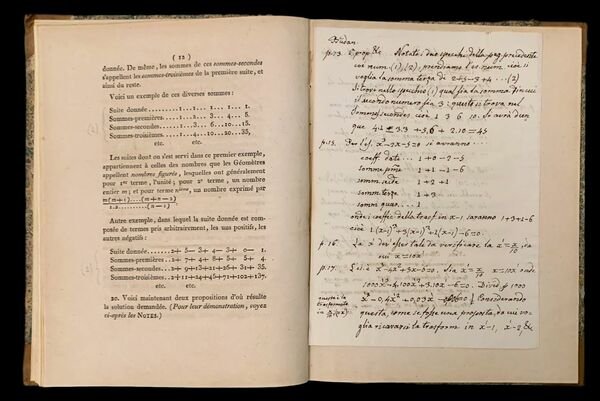 ( 12 )
donnée. De même, les sommes de ces sommes-secondes
s'appellent les sommes-troisièmes de la première suite, et
ainsi du reste.
Voici un exemple de ces diverses sommes :
Suite donnée..........1... 1... 1... 1... 1.
Sommes-premières......1... 2... 3... 4... 5.
Sommes-secondes.......1... 3... 6...10...15.
Sommes-troisièmes.....1... 4...10...20...35,
etc. etc.
Les suites dont on s'est servi dans ce premier exemple,
appartiennent à celles des nombres que les Géomètres
appellent nombres figurés, lesquelles ont généralement
pour 1er terme, l'unité; pour 2e terme, un nombre
entier m; et pour terme nième, un nombre exprimé par
m(m+1)....(m+n−2)
1.2..........(n−1)
Autre exemple, dans lequel la suite donnée est com-
posée de termes pris arbitrairement, les uns positifs, les
autres négatifs :
Suite donnée.......2+ 5− 3+ 4− 3+ 0− 1.
Sommes-premières...2+ 7+ 4+ 8+ 5+ 5+ 4.
Sommes-secondes....2+ 9+13+21+26+31+ 35.
Sommes-troisièmes..2+11+24+45+71+102+137.
etc. etc.
20. Voici maintenant deux propositions d'où résulte
la solution demandée. (Pour leur démonstration, voyez
ci-après les NOTES.)
Budan.
p. 13. Notate i due specchi della pag. precedente
coi num. (1), (2), prendiamo l'es. num. cioè si
voglia la somma terza di 2+5−3+4...(2)
si trovi nello specchio (1) qual sia la somma
il secondo numero sia 3; questo si trova nel
somme secondo, cioè 1 3 6 10. Si avrà dun
que 4.1 + 3.3 + 5.6 + 2.10 = 45
p. 15. Per l'es. x³−2x−5=0 si avranno
coeff. dati... 1+0−2−5
somme pme 1+1−1−6
somm. sede 1+2+1
somm. terza 1+3
somm. quar... 1
onde i coeffic. della trasf. in x−1 saranno 1+3+1−6
cioè 1(x−1)³+3(x−1)²+1(x−1)−6=0.
p. 16. La x' dev'esser tale da verificare la x'=x/10, da
cui x=10x'
p. 17. Sia x³−4x²+3x−6=0. Sia x'=x/10 x=10x' onde
1000x'³−4.100x'²+3.10x'−6=0. Divid. p. 1000
questa è la
trasformata
in x/10 (p. 12)
x'³−0,4x'²+0,03x'−0,006=0 Considerando
questa, come se fosse una proposta, da cui vo-
glia ricavarsi la trasform. in x'−1, x'−2, &c